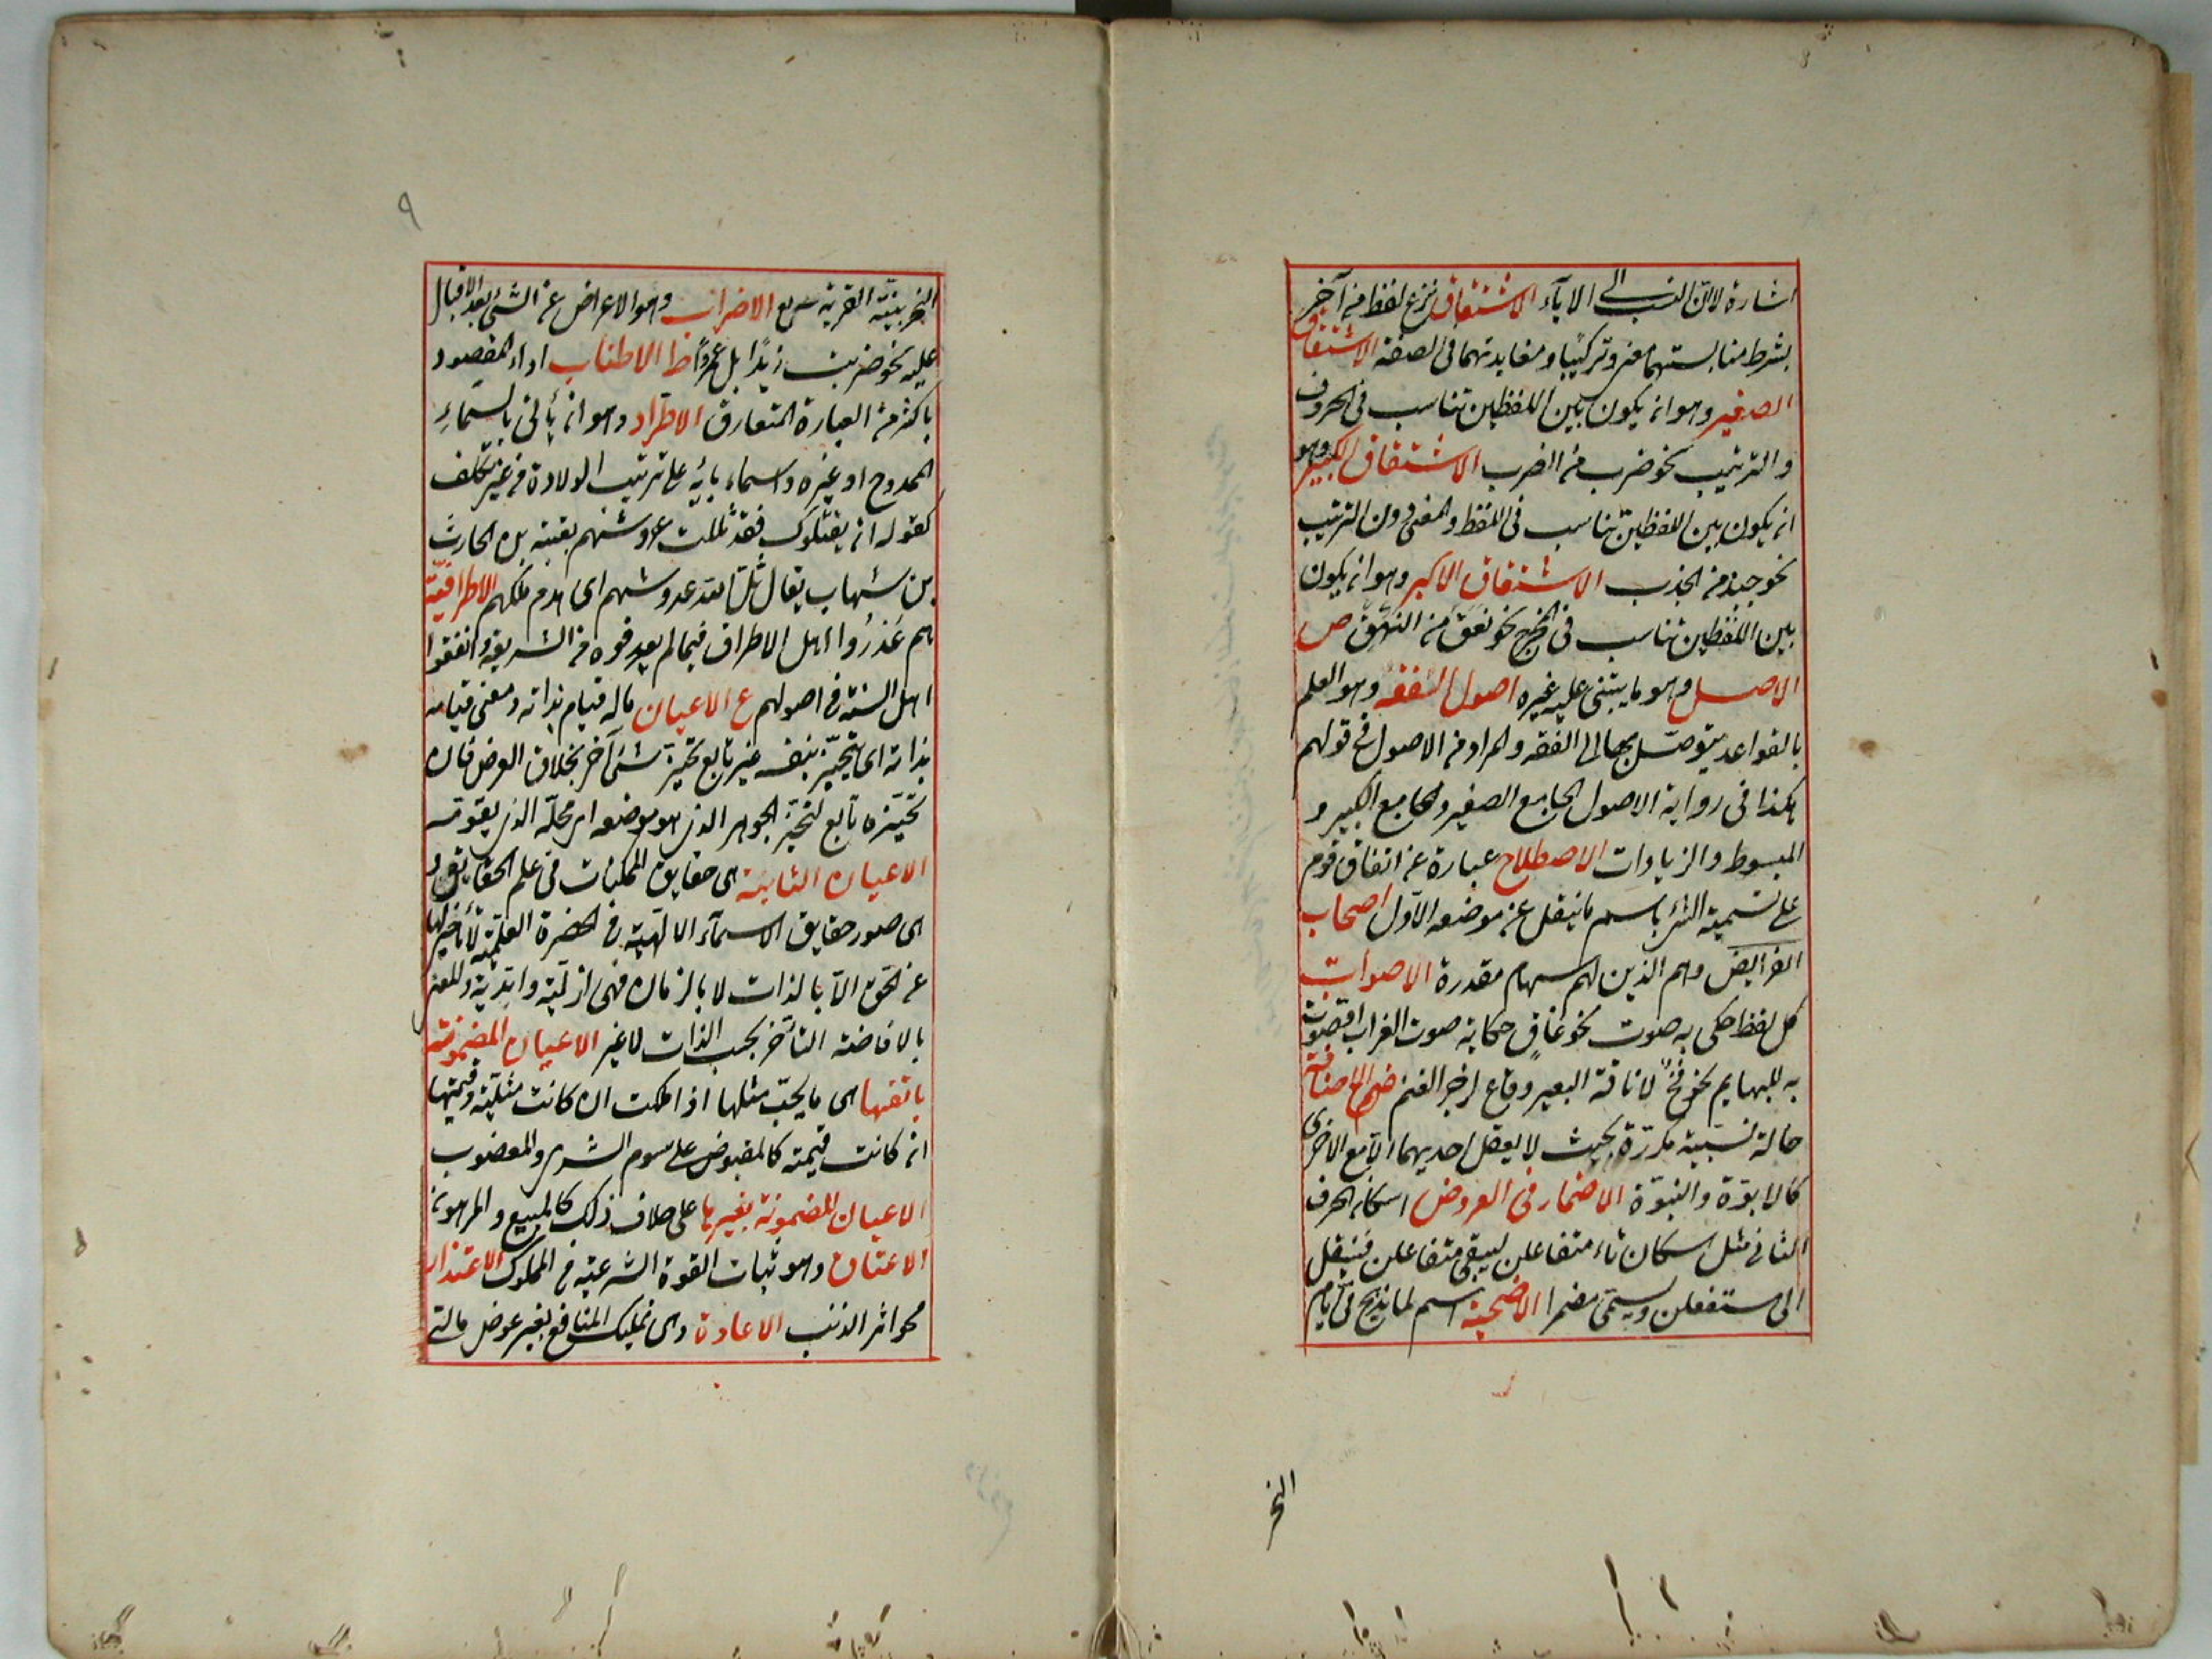 اشارة لانّ النسب الى الاباء الاشتقاق نزع لفظ من آخر
بشرط مناسبتهما معنى وتركيبا ومغايرتهما فى الصيغة الاشتقاق
الصغير وهو ان يكون بين اللفظين تناسب فى الحروف
والترتيب نحو ضرب من الضرب الاشتقاق الكبير وهو
ان يكون بين اللفظين تناسب فى اللفظ والمعنى دون الترتيب
نحو جبذ من الجذب الاشتقاق الاكبر وهو ان يكون
بين اللفظين تناسب فى المخرج نحو نعق من النهق ص
الاصل وهو ما يبتنى عليه غيره اصول الفقه وهو العلم
بالقواعد يتوصّل بها الى الفقه والمراد من الاصول فى قولهم
هكذا فى رواية الاصول الجامع الصغير والجامع الكبير و
المبسوط والزيادات الاصطلاح عبارة عن اتفاق قوم
على تسمية الشئ باسم ما ينقل عن موضعه الاول اصحاب
الفرايض وهم الذين لهم سهام مقدرة الاصوات
كل لفظ حكى به صوت نحو غاق حكاية صوت الغراب او صوّت
به للبهايم نحو نخّ لاناخة البعير وقاع لزجر الغنم ض الاضافة
حالة نسبية مكررة بحيث لا يعقل احديهما الا مع الاخرى
كالابوّة والبنوّة الاضمار فى العروض اسكان الحرف
الثانى مثل اسكان تاء متفاعلن ليبقى متفاعلن فينقل
الى مستفعلن ويسمّى مضمرا الاضحية اسم لما يذبح فى ايام
النحر
٩
النحر بنية القربة الاضراب وهو الاعراض عن الشئ بعد الاقبال
عليه نحو ضربت زيدًا بل عمروًا ط الاطناب اداء المقصود
باكثر من العبارة المتعارف الاطراد وهو ان يأتى باسماء
الممدوح او غيره واسماء بائه على ترتيب الولادة من غير تكلف
كقوله ان يقتلوك فقد ثللت عروشهم بعتيبة بن الحارث
بن شهاب يقال ثلّ الله عروشهم اى هدم ملكهم الاطرافية
هم عَذَرُوا اهل الاطراف فيما لم يعرفوه من الشريعة واتفقوا
اهل السنة فى اصولهم ع الاعيان ماله قيام بذاته ومعنى قيامه
بذاته اى يتحيّز بنفسه غير تابع تحيّزه شئ آخر بخلاف العرض فان
تحيّزه تابع لتحيّز الجوهر الذى هو موضعه اى محلّه الذى يقومه
الاعيان الثابتة هى حقايق الممكنات فى علم الحق تع و
هى صور حقايق الاسماء الالهية فى الحضرة العلمية لا تأخر لها
عن الحق الا بالذات لا بالزمان فهى ازلية وابدية والمعنى
بالاضافة التأخر بحسب الذات لا غير الاعيان المضمونة
بانفسها هى ما يجب مثلها اذا هلكت ان كانت مثلية وقيمتها
ان كانت قيمته كالمقبوض على سوم الشرى والمغصوب
الاعيان المضمونة بغيرها على خلاف ذلك كالمبيع والمرهون
الاعتاق وهو ثبات القوة الشرعية فى المملوك الاعتذار
محو اثر الذنب الاعارة وهى تمليك المنافع بغير عوض مالى